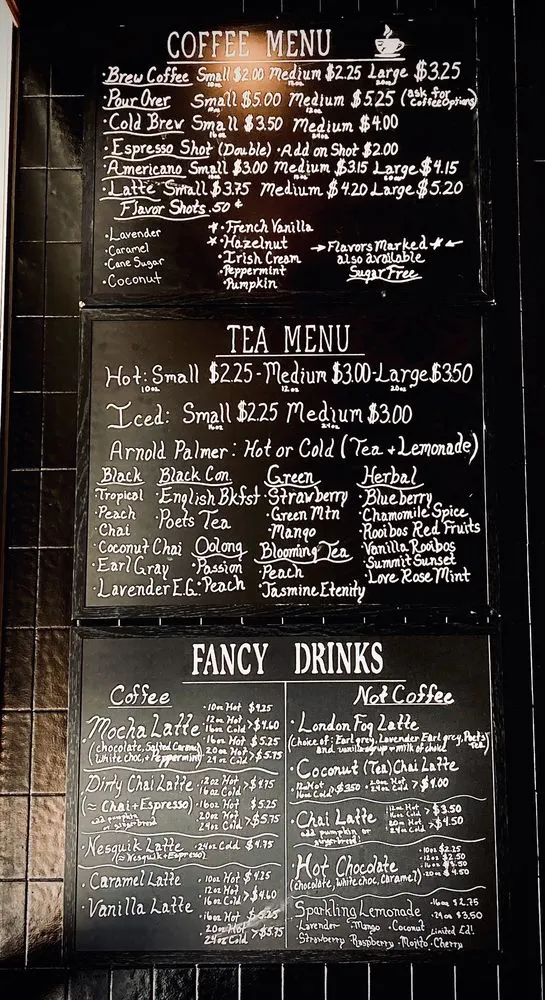 COFFEE MENU
·Brew Coffee Small $2.00 Medium $2.25 Large $3.25
·Pour Over Small $5.00 Medium $5.25 (ask for Coffee Options)
·Cold Brew Small $3.50 Medium $4.00
·Espresso Shot (Double) ·Add on Shot $2.00
·Americano Small $3.00 Medium $3.15 Large $4.15
·Latte Small $3.75 Medium $4.20 Large $5.20
Flavor Shots .50¢
·Lavender
·Caramel
·Cane Sugar
·Coconut
*·French Vanilla
*·Hazelnut
·Irish Cream
·Peppermint
·Pumpkin
→Flavors Marked *←
also available
Sugar Free
TEA MENU
Hot: Small $2.25-Medium $3.00-Large $3.50
10oz 12oz 20oz
Iced: Small $2.25 Medium $3.00
16oz 24oz
Arnold Palmer: Hot or Cold (Tea + Lemonade)
Black
·Tropical
·Peach
·Chai
·Coconut Chai
·Earl Gray
·Lavender E.G.
Black Con.
·English Bkfst
·Poets Tea
Oolong
·Passion
·Peach
Green
·Strawberry
·Green Mtn
·Mango
Blooming Tea
Peach
·Jasmine Etenity
Herbal
·Blueberry
·Chamomile Spice
·Rooibos Red Fruits
·Vanilla Rooibos
·Summit Sunset
·Love Rose Mint
FANCY DRINKS
Coffee
Mocha Latte
(chocolate, Salted Caramel
White choc, + Peppermint)
·10oz Hot $4.25
12oz Hot
16oz Cold >$4.60
16oz Hot $5.25
20oz Hot
24oz Cold >$5.75
Dirty Chai Latte
(≈ Chai+Espresso)
add pumpkin
or gingerbread
·12oz Hot
16oz Cold >$4.75
·16oz Hot $5.25
20oz Hot
24oz Cold >$5.75
·Nesquik Latte ·24oz Cold $4.75
(≈ Nesquik+Espresso)
·Caramel Latte
·Vanilla Latte
·10oz Hot $4.25
12oz Hot
16oz Cold >$4.60
·16oz Hot $5.25
20oz Hot
24oz Cold >$5.75
Not Coffee
·London Fog Latte
(choice of: Earl grey, Lavender Earl grey, Poets Tea
and vanilla syrup + milk of choice)
·Coconut (Tea) Chai Latte
12oz Hot
16oz Cold >$3.50
20oz Hot
24oz Cold >$4.00
·Chai Latte
add pumpkin or
gingerbread!
12oz Hot
16oz Cold >$3.50
20oz Hot
24oz Cold >$4.50
·Hot Chocolate
(chocolate, white choc, caramel)
·10oz $2.25
·12oz $2.50
·16oz $3.50
·20oz $4.50
Sparkling Lemonade
·16oz $2.75
·24oz $3.50
·Lavender ·Mango ·Coconut Limited Ed!
·Strawberry ·Raspberry ·Mojito ·Cherry